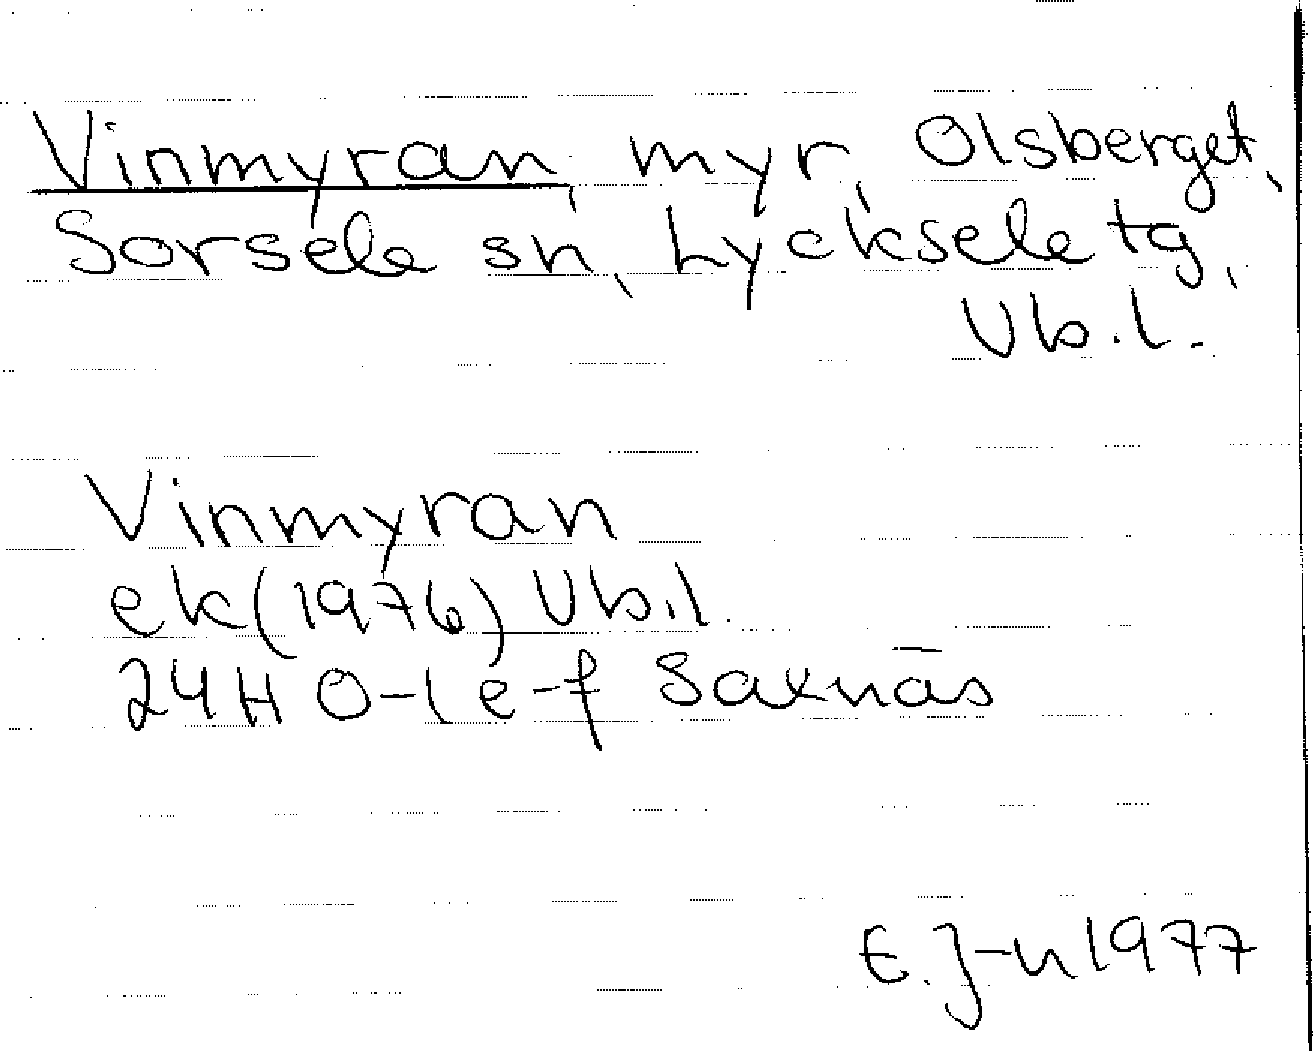 Vinmyran, myr, Olsberget,
Sorsele sn, Lycksele tg,
Vb.l.
Vinmyran
ek(1976) Vb.l.
24H 0-1 e-f Saxnäs
E.J-n 1977